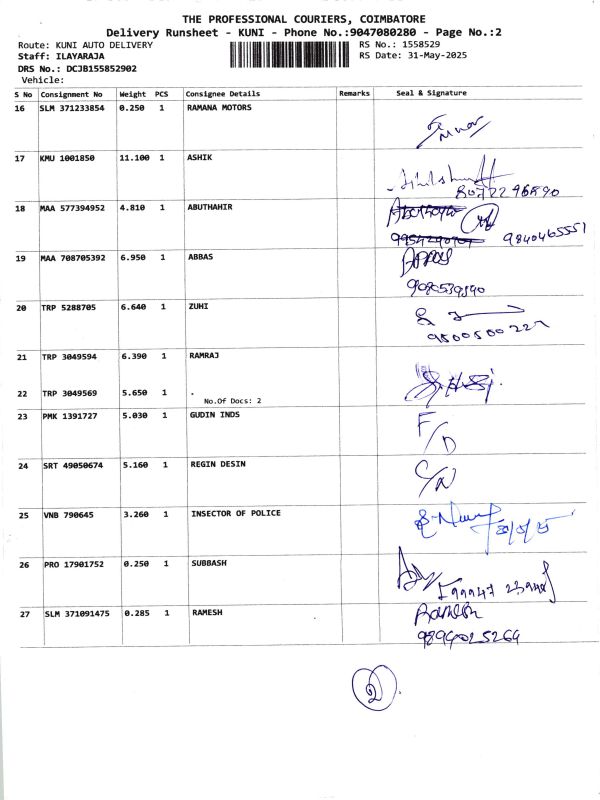 THE PROFESSIONAL COURIERS, COIMBATORE
Delivery Runsheet - KUNI - Phone No.:9047080280 - Page No.:2
Route: KUNI AUTO DELIVERY
RS No.: 1558529
Staff: ILAYARAJA
RS Date: 31-May-2025
DRS No.: DCJB155852902
Vehicle:
S No Consignment No Weight PCS Consignee Details Remarks Seal & Signature
16 SLM 371233854 0.250 1 RAMANA MOTORS
17 KMU 1001850 11.100 1 ASHIK
18 MAA 577394952 4.810 1 ABUTHAHIR
9840465551
19 MAA 708705392 6.950 1 ABBAS
20 TRP 5288705 6.640 1 ZUHI
9500500227
21 TRP 3049594 6.390 1 RAMRAJ
22 TRP 3049569 5.650 1 .
No.Of Docs: 2
23 PMK 1391727 5.030 1 GUDIN INDS
F/D
24 SRT 49050674 5.160 1 REGIN DESIN
25 VNB 790645 3.260 1 INSECTOR OF POLICE
26 PRO 17901752 0.250 1 SUBBASH
27 SLM 371091475 0.285 1 RAMESH
Ramesh
9894025264
2